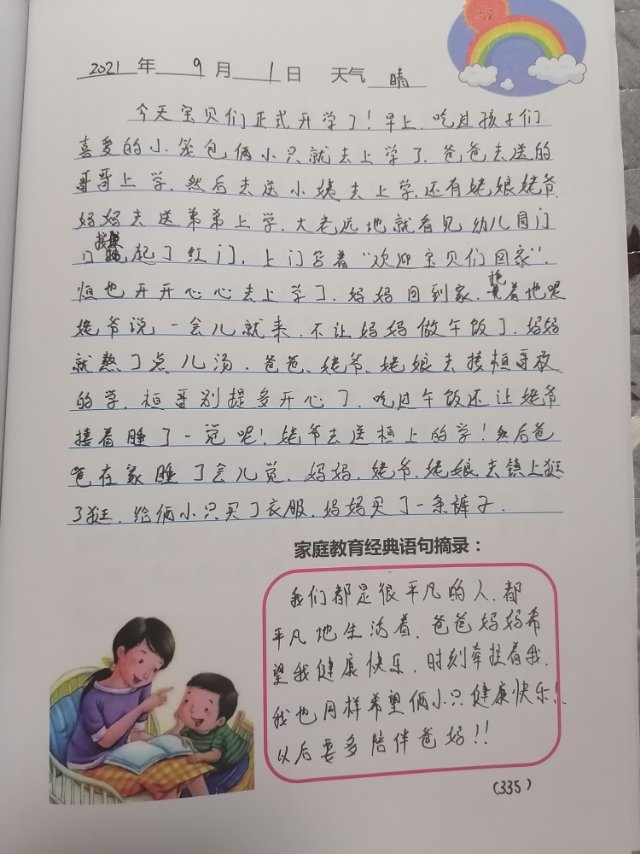 2021 年 9 月 1 日 天气 晴
今天宝贝们正式开学了!早上.吃过孩子们
喜爱的小笼包俩小只就去上学了.爸爸去送的
哥哥上学.然后去送小姨去上学.还有姥娘姥爷.
妈妈去送弟弟上学.大老远地就看见幼儿园门
口起了红门,上门写着“欢迎宝贝们回家”.
恒也开开心心去上学了.妈妈回到家.拖着地呢
姥爷说一会儿就来.不让妈妈做午饭了.妈妈
就熬了点儿汤.爸爸、姥爷、姥娘去接桓哥放
的学.桓哥别提多开心了.吃过午饭还让姥爷
搂着睡了一觉呢!姥爷去送桓上的学!然后爸
爸在家睡了会儿觉.妈妈.姥爷.姥娘去镇上逛
了逛.给俩小只买了衣服.妈妈买了一条裤子.
家庭教育经典语句摘录:
我们都是很平凡的人.都
平凡地生活着.爸爸妈妈希
望我健康快乐.时刻牵挂着我.
我也同样希望俩小只健康快乐!
以后要多陪伴爸妈!!
(335)